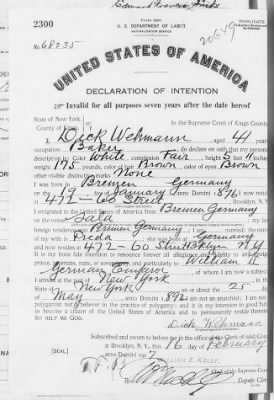 Form 2203
U. S. DEPARTMENT OF LABOR
NATURALIZATION SERVICE
2300
No. 68235
20649
UNITED STATES OF AMERICA
DECLARATION OF INTENTION
Invalid for all purposes seven years after the date hereof
State of New York,
County of Kings, In the Supreme Court of Kings County.
I, Dick Wehmann, aged 41 years,
occupation Baker, do declare on oath that my personal
description is: Color White, complexion Fair, height 5 feet 11 inches,
weight 175 pounds, color of hair Brown, color of eyes Brown
other visible distinctive marks None
I was born in Bremen Germany
on the day of January, anno Domini 1876; I now reside
at 472-60 Street, Brooklyn, N.Y.
I emigrated to the United States of America from Bremen Germany
on the vessel Gala; my last
foreign residence was Bremen Germany
Freda Germany
and now resides at 472-60 Street Bklyn N.Y
It is my bona fide intention to renounce forever all allegiance and fidelity to any foreign
and particularly to William II
German Emperor
port of New York
New York on or about the 25 day
of May, anno Domini 1892; I am not an anarchist; I am not a
polygamist nor a believer in the practice of polygamy; and it is my intention in good faith
to become a citizen of the United States of America and to permanently reside therein:
SO HELP ME GOD.
Dick Wehmann
Subscribed and sworn to before me in the office of the Clerk of said Court
at Brooklyn, N. Y., this 26 day of February
anno Domini 1917
[SEAL]
WILLIAM E. KELLY,
Clerk of the Supreme Court.
By Deputy Clerk